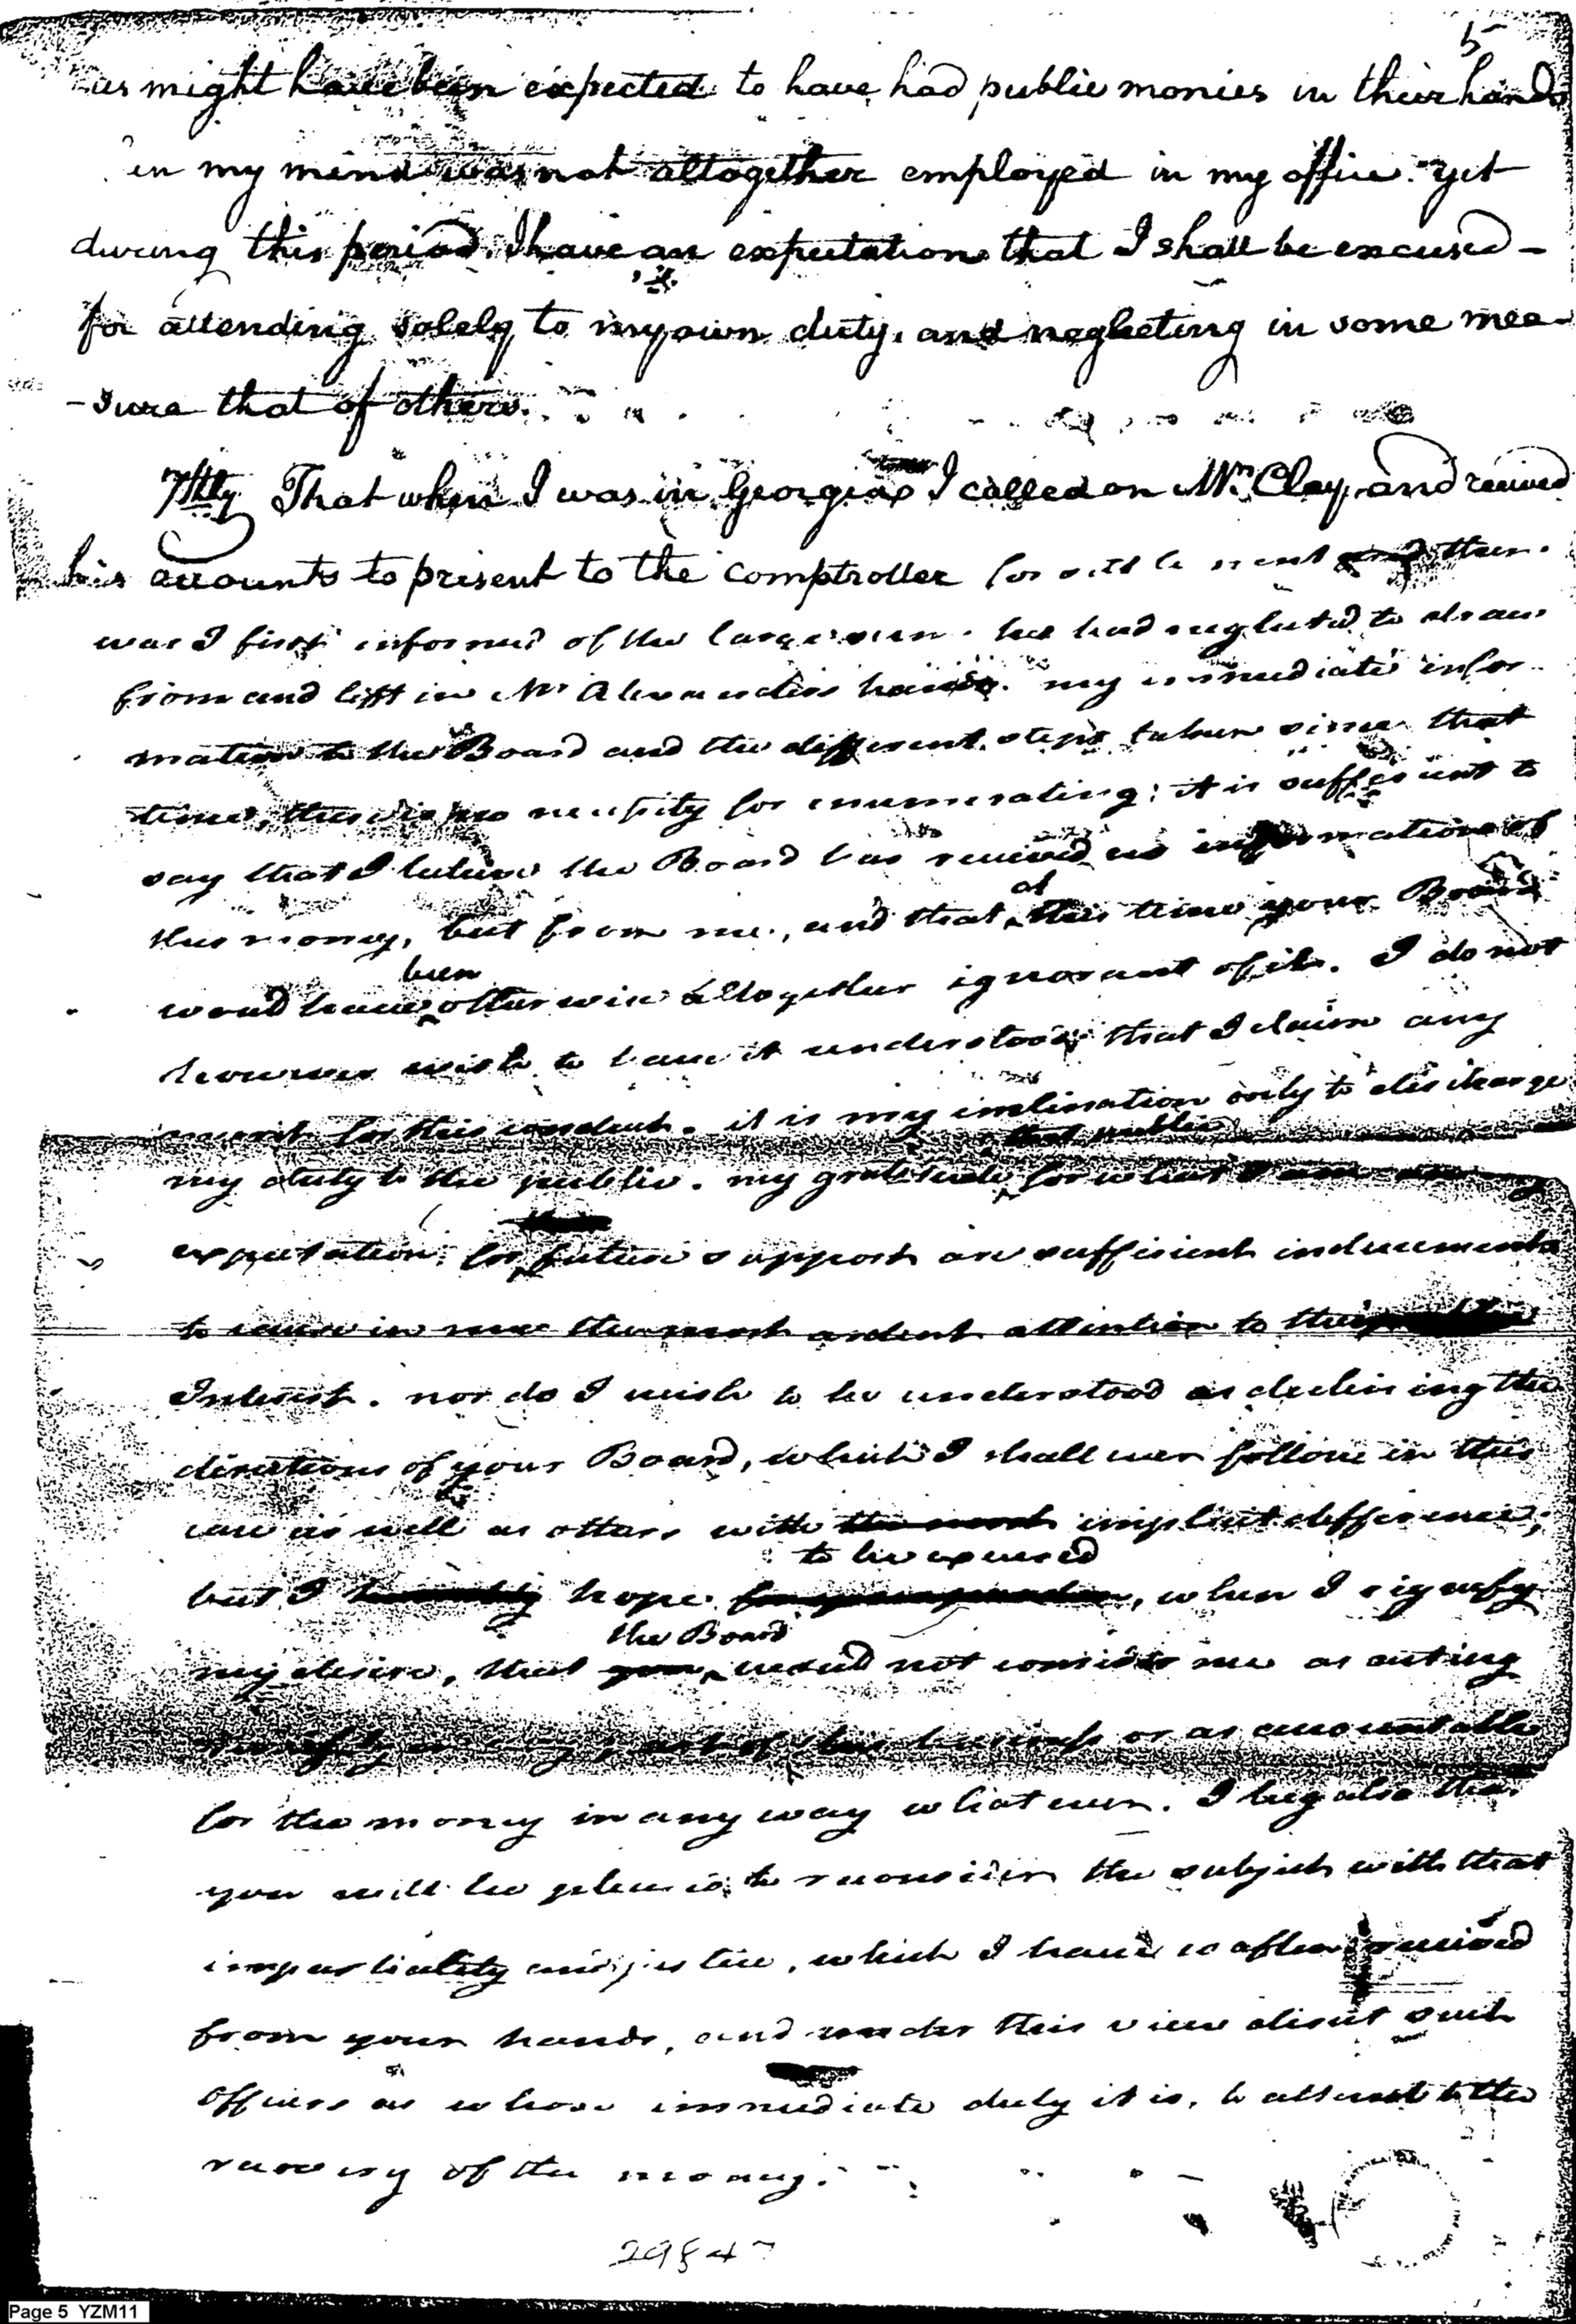 5
as might have been expected to have had public monies in their hands
in my mind was not altogether employed in my office. yet
during this period. I have an expectation that I shall be excused –
for attending solely to my own duty, and neglecting in some mea-
-sure that of others.
7thly That when I was in Georgia I called on Mr. Clay, and received
his accounts to present to the comptroller for settlement then
was I first informed of the large sum he had neglected to draw
from and left in Mr Alexanders hands. my immediate infor-
mation to the Board and the different steps taken since that
time, there is no necessity for enumerating: it is sufficient to
say that I believe the Board has received no information of
this money, but from me, and that at this time your Board
would have been otherwise altogether ignorant of it. I do not
however wish to have it understood that I claim any
merit for this conduct. it is my inclination only to discharge
my duty to the public. my gratitude for what I
expectation for future support are sufficient inducements
to cause in me the most ardent attention to their
Interest. nor do I wish to be understood as declining the
directions of your Board, which I shall ever follow in this
case as well as others with the most implicit defference;
to be excused
but I humbly hope , when I signify
the Board
my desire, that you would not consider me as acting
part of this business or as accountable
for the money in any way whatever. I beg also that
you will be pleased to reconsider the subject with that
impartiality and justice, which I have so often received
from your hands, and under this view direct such
officers as whose immediate duty it is, to attend to the
recovery of the money.
29847
Page 5 YZM11